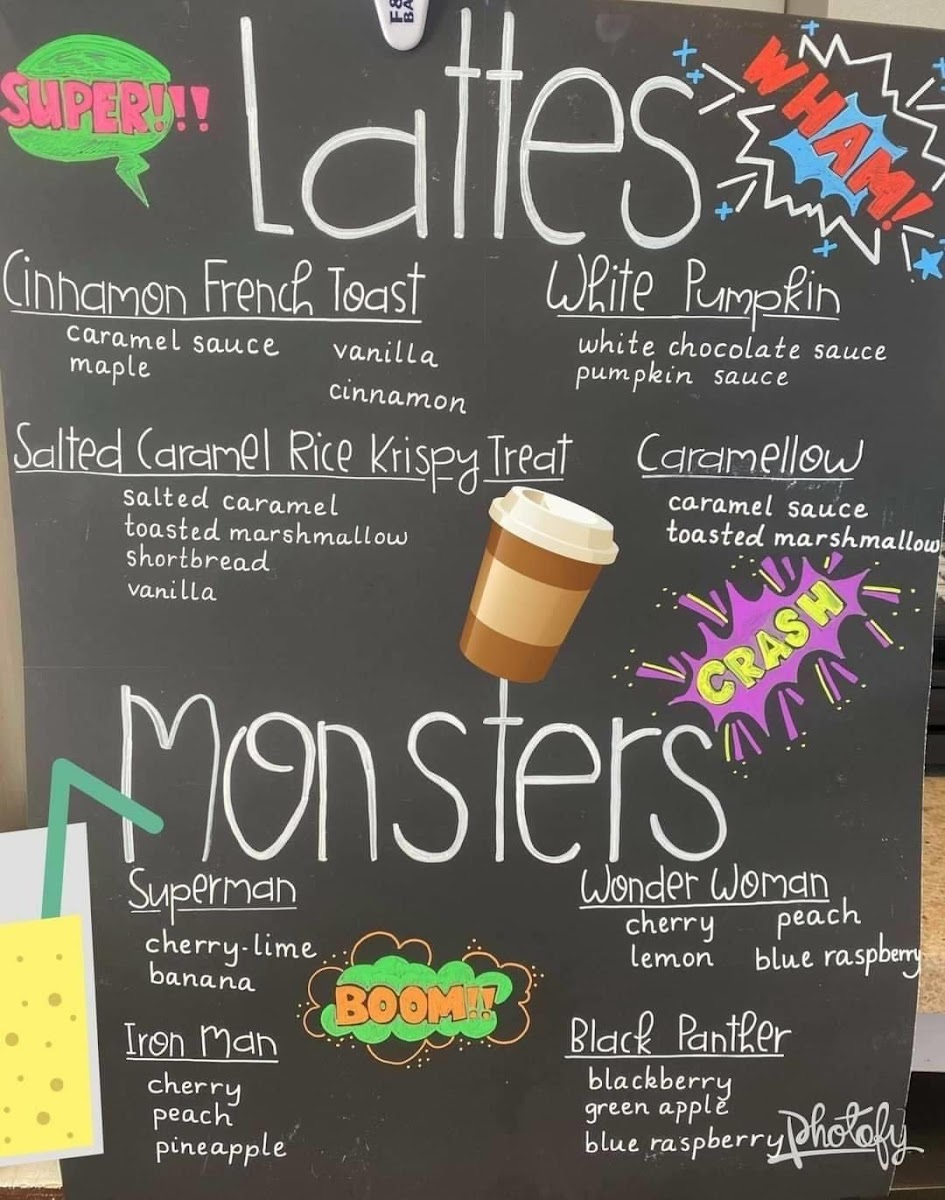 SUPER!!!
Lattes
WHAM!
Cinnamon French Toast
caramel sauce
maple
vanilla
cinnamon
White Pumpkin
white chocolate sauce
pumpkin sauce
Salted Caramel Rice Krispy Treat
salted caramel
toasted marshmallow
shortbread
vanilla
Caramellow
caramel sauce
toasted marshmallow
CRASH
Monsters
Superman
cherry-lime
banana
Wonder Woman
cherry
peach
lemon
blue raspberry
BOOM!!
Iron Man
cherry
peach
pineapple
Black Panther
blackberry
green apple
blue raspberry
photofy